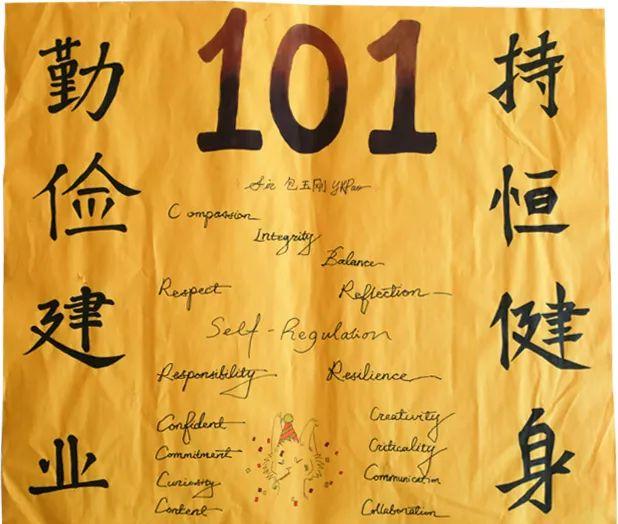 101
勤俭建业
持恒健身
Sir 包玉刚 YKPao
Compassion
Integrity
Balance
Respect Reflection
Self-Regulation
Responsibility Resilience
Confident Creativity
Commitment Criticality
Curiosity Communication
Content Collaboration